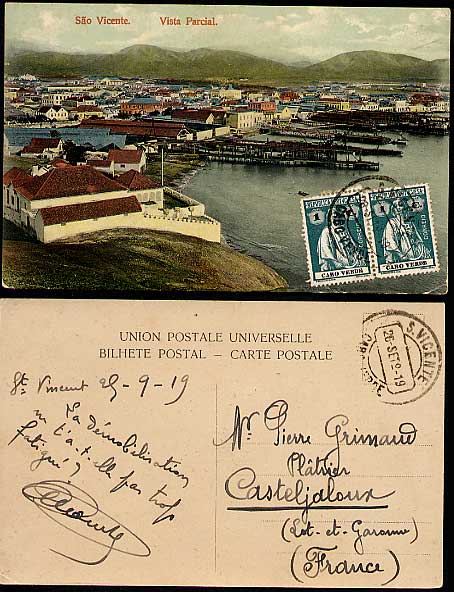 São Vicente. Vista Parcial.
REPUBLICA PORTUGUESA
1 C CORREIO
CABO VERDE
1 C CORREIO
CABO VERDE
UNION POSTALE UNIVERSELLE
BILHETE POSTAL – CARTE POSTALE
S. VICENTE
26-SET.-19
St Vincent 25-9-19
Ta démobilisation
ne t'a-t-elle pas trop
fatigué?
Mr Pierre Grimaud
Plâtrier
Casteljaloux
(Lot-et-Garonne)
(France)